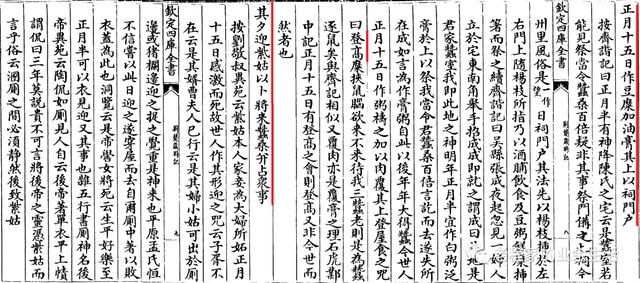 正月十五日作豆糜加油膏其上以祠門户
按齊諧記曰正月半有神降陳氏之宅云是蠶室若
能見祭當令蠶桑百倍疑非其事祭門備之七祠今
欽定四庫全書 荆楚歲時記 八
州里風俗是望作日祠門户其法先以楊枝插於左
右門上隨楊枝所指乃以酒脯飲食及豆粥糕糜插
箸而祭之續齊諧記曰吳縣張成夜起忽見一婦人
立於宅東南角舉手招成成即就之謂成曰此地是
君家蠶室我即此地之神明年正月半宜作白粥泛
膏於上以祭我當令君蠶桑百倍言訖而去遂失所
在成如言為作膏粥自此以後年年大得蠶今世人
正月十五日作粥禱之加以肉覆其上登屋食之呪
曰登高糜挾鼠腦欲來不來待我三蠶老則是為蠶
逐鼠矣與齊諧相似又覆肉亦是覆膏之理石虎鄴
中記正月十五日有登高之會則登高又非今世而
然者也
其夕迎紫姑以卜將來蠶桑并占衆事
按劉敬叔異苑云紫姑本人家妾為大婦所妬正月
十五日感激而死故世人作其形迎之咒云子胥不
欽定四庫全書 荆楚歲時記 九
在云是其壻曹夫人已行云是其婦小姑可出於厠
邊或猪欄邊迎之捉之覺重是神來也平原孟氏恒
不信嘗以此日迎之遂穿屋而去自爾厠中著以敗
衣蓋為此也洞覽云是帝嚳女將死云生平好樂至
正月半可以衣見迎又其事也雜五行書厠神名後
帝異苑云陶侃如厠見人自云後帝著單衣平上幘
謂侃曰三年莫說貴不可言將後帝之靈憑紫姑而
言乎俗云溷厠之間必須静然後致紫姑